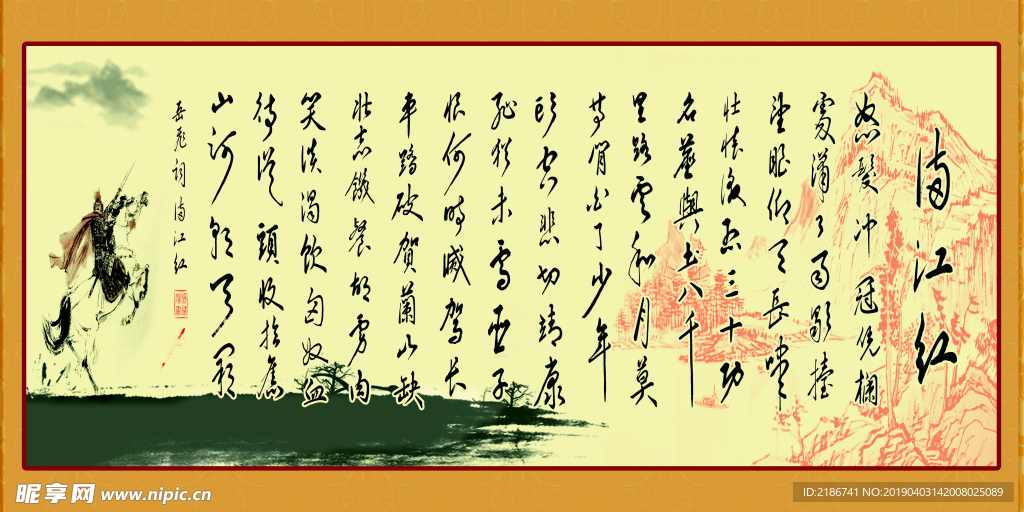 满江红
怒髮冲冠凭栏
处潇々雨歇抬
望眼仰天长啸
壮怀激烈三十功
名尘與土八千
里路雲和月莫
等闲白了少年
头空悲切靖康
耻犹未雪臣子
恨何时滅驾长
车踏破贺蘭山缺
壮志饑餐胡虏肉
笑谈渴饮匈奴血
待从頭收拾舊
山河朝天阙
岳飛词满江红
昵享网 www.nipic.cn
ID:2186741 NO:20190403142008025089